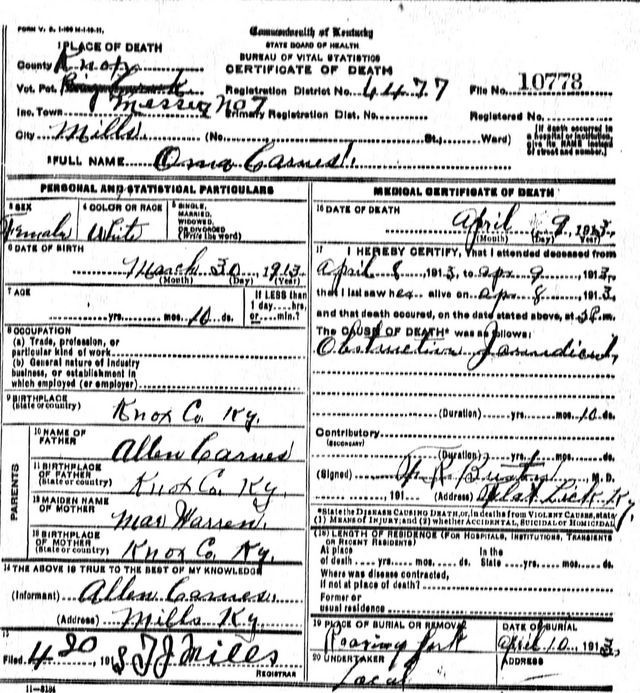 FORM V. S. 1-100 M-1-19-11.
Commonwealth of Kentucky
STATE BOARD OF HEALTH
BUREAU OF VITAL STATISTICS
CERTIFICATE OF DEATH
1 PLACE OF DEATH
County Knox
Vot. Pct. Messer No 7
Registration District No. 4477
File No. 10773
Inc. Town
Primary Registration Dist. No.
Registered No.
City Mills (No. St.; Ward)
[If death occurred in a hospital or institution, give its NAME instead of street and number.]
2 FULL NAME Oma Carnes
PERSONAL AND STATISTICAL PARTICULARS
3 SEX Female
4 COLOR OR RACE White
5 SINGLE, MARRIED, WIDOWED, OR DIVORCED (Write the word)
6 DATE OF BIRTH
March 30, 1913
(Month) (Day) (Year)
7 AGE
yrs. mos. 10 ds.
If LESS than 1 day, hrs. or min.?
8 OCCUPATION
(a) Trade, profession, or particular kind of work
(b) General nature of industry business, or establishment in which employed (or employer)
9 BIRTHPLACE
(State or country) Knox Co. Ky.
PARENTS
10 NAME OF FATHER Allen Carnes
11 BIRTHPLACE OF FATHER
(State or country) Knox Co. Ky.
12 MAIDEN NAME OF MOTHER Warren
13 BIRTHPLACE OF MOTHER
(State or country) Knox Co Ky.
14 THE ABOVE IS TRUE TO THE BEST OF MY KNOWLEDGE
(Informant) Allen Carnes
(Address) Mills Ky
15
Filed 4 20, 191 Mills
REGISTRAR
11-8184
MEDICAL CERTIFICATE OF DEATH
16 DATE OF DEATH
April 9, 1913
(Month) (Day) (Year)
17 I HEREBY CERTIFY, That I attended deceased from
April 8 1913, to apr 9, 1913,
that I last saw her alive on apr 8, 1913,
and that death occurred, on the date stated above, at m.
The CAUSE OF DEATH* was as follows:
Obstruction
(Duration) yrs. mos. 10 ds.
Contributory
(SECONDARY)
(Duration) yrs. mos. ds.
(Signed) M. D.
191 (Address) Flat Lick Ky.
*State the DISEASE CAUSING DEATH, or, in deaths from VIOLENT CAUSES, state (1) MEANS OF INJURY; and (2) whether ACCIDENTAL, SUICIDAL or HOMICIDAL
(18) LENGTH OF RESIDENCE (FOR HOSPITALS, INSTITUTIONS, TRANSIENTS OR RECENT RESIDENTS)
At place of death yrs. mos. ds. In the State yrs. mos. ds.
Where was disease contracted, if not at place of death?
Former or usual residence
19 PLACE OF BURIAL OR REMOVAL Roaring Fork
DATE OF BURIAL April 10, 1913
20 UNDERTAKER Local
ADDRESS